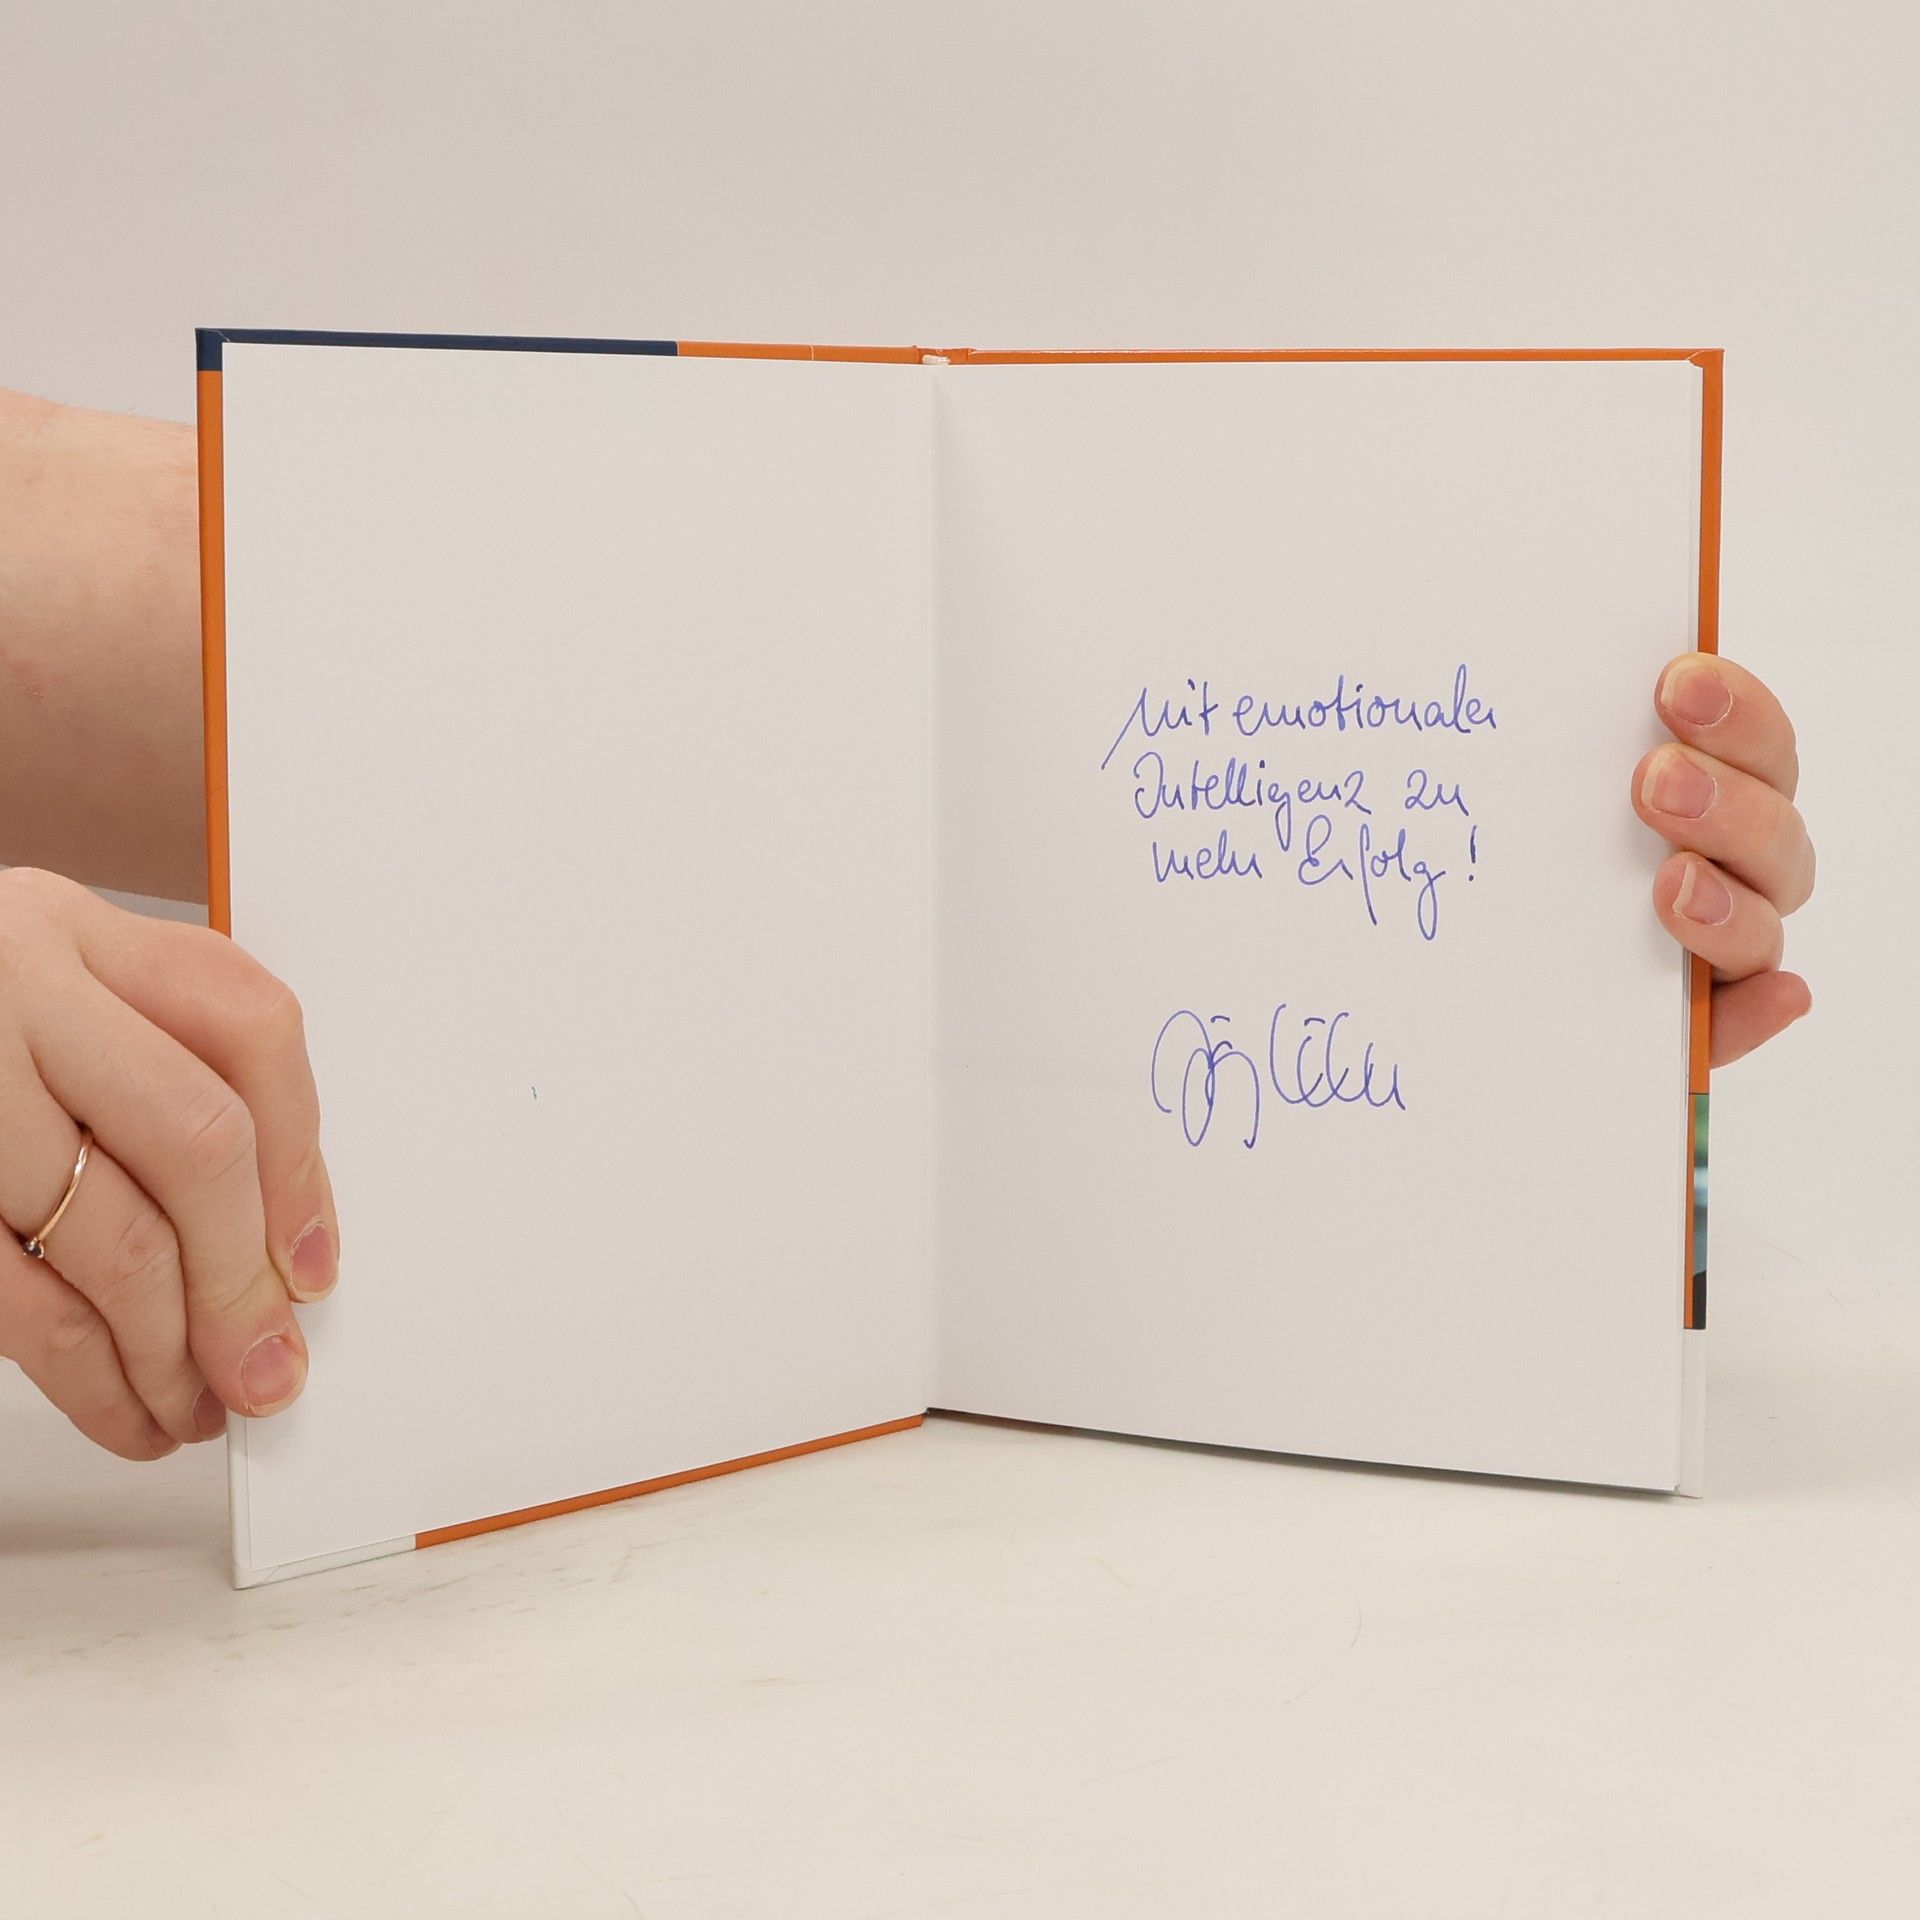 Mit emotionaler
Intelligenz zu
mehr Erfolg!
Jörg